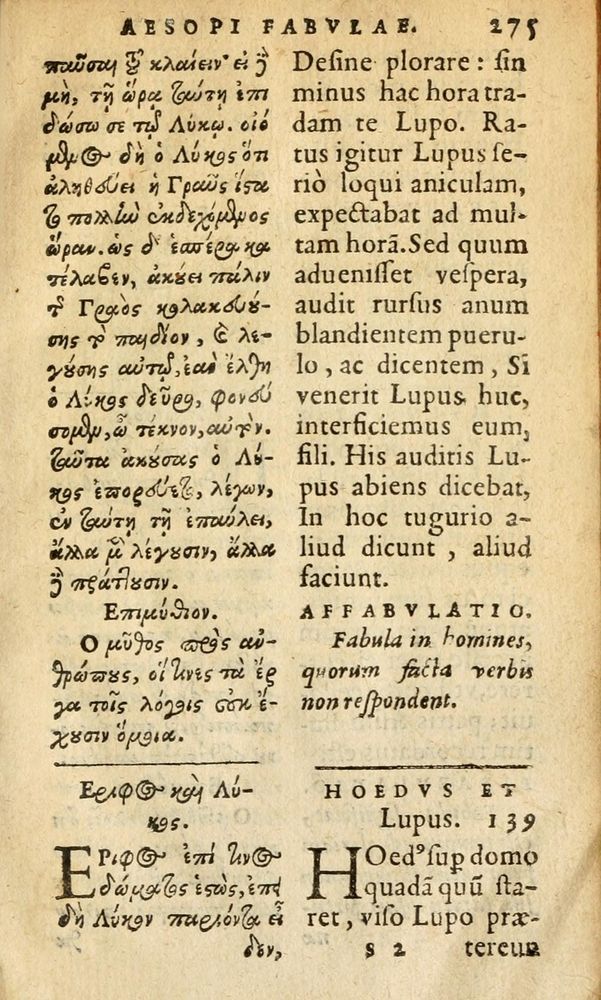 AESOPI FABVLAE. 275
παῦσαι τοῦ κλαίειν· εἰ δὲ
μὴ, τῇ ὥρᾳ ταύτῃ ἐπι
δώσω σε τῷ Λύκῳ. οἰό
μενος δὴ ὁ Λύκος ὅτι
ἀληθεύει ἡ Γραῦς ἵστα
το πολλὴν ἐκδεχόμενος
ὥραν. ὡς δ' ἑσπέρα κα
τέλαβεν, ἀκούει πάλιν
τῆς Γραὸς κολακευού-
σης τὸ παιδίον, καὶ λε-
γούσης αὐτῷ, ἐὰν ἔλθῃ
ὁ Λύκος δεῦρο, φονεύ
σομεν, ὦ τέκνον, αὐτόν.
ταῦτα ἀκούσας ὁ Λύ-
κος ἐπορεύετο, λέγων,
ἐν ταύτῃ τῇ ἐπαύλει,
ἄλλα μὲν λέγουσιν, ἄλλα
δὲ πράττουσιν.
Επιμύθιον.
Ο μῦθος πρὸς ἀν-
θρώπους, οἵ τινες τὰ ἔρ
γα τοῖς λόγοις οὐκ ἔ-
χουσιν ὅμοια.
Εριφος καὶ Λύ-
κος.
ΕΡιφος ἐπί τινος
δώματος ἑστὼς, ἐπει
δὴ Λύκον παριόντα εἶ
δεν,
Desine plorare: sin
minus hac hora tra-
dam te Lupo. Ra-
tus igitur Lupus se-
riò loqui aniculam,
expectabat ad mul-
tam horã. Sed quum
aduenisset vespera,
audit rursus anum
blandientem pueru-
lo, ac dicentem, Si
venerit Lupus huc,
interficiemus eum,
fili. His auditis Lu-
pus abiens dicebat,
In hoc tugurio a-
liud dicunt, aliud
faciunt.
AFFABVLATIO.
Fabula in homines,
quorum facta verbis
non respondent.
HOEDVS ET
Lupus. 139
HOedꝰ suꝑ domo
quadã quũ sta-
ret, viso Lupo præ-
s 2 tereun